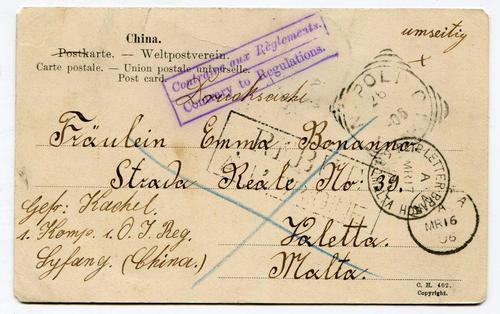 China.
Postkarte. — Weltpostverein.
Carte postale. — Union postale universelle.
Post card.
umseitig
Contraire aux Règlements.
Contrary to Regulations.
Drucksache
NAPOLI
26
-06
Fräulein Emma Bonanno
Strada Reale No: 39.
Valetta.
Malta.
Gefr: Kachel.
1. Komp. i. O. I. Reg.
Syfang. (China.)
MR 17
MALTA
MR 16
06
C. H. 462.
Copyright.